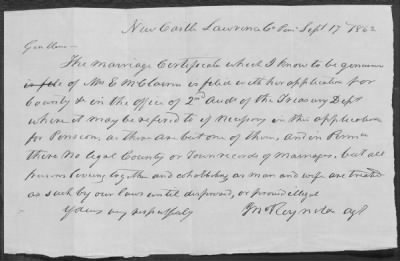 New Castle Lawrence Co Penn Sept 17th 1862
Gentlemen
The Marriage Certificate which I know to be genuine
of Mrs E McClaren is filed with her application for
bounty &c in the office of 2nd Aud of the Treasury Dept
where it may be refered to if necessary in the application
for Pension, as there are but one of them, and in Penna
there No legal County or Town records of marriages, but all
persons living together and cohabiting as man and wife are treated
as such by our laws until disproved, or proved illegal
Yours very respectfully
Reynolds agt